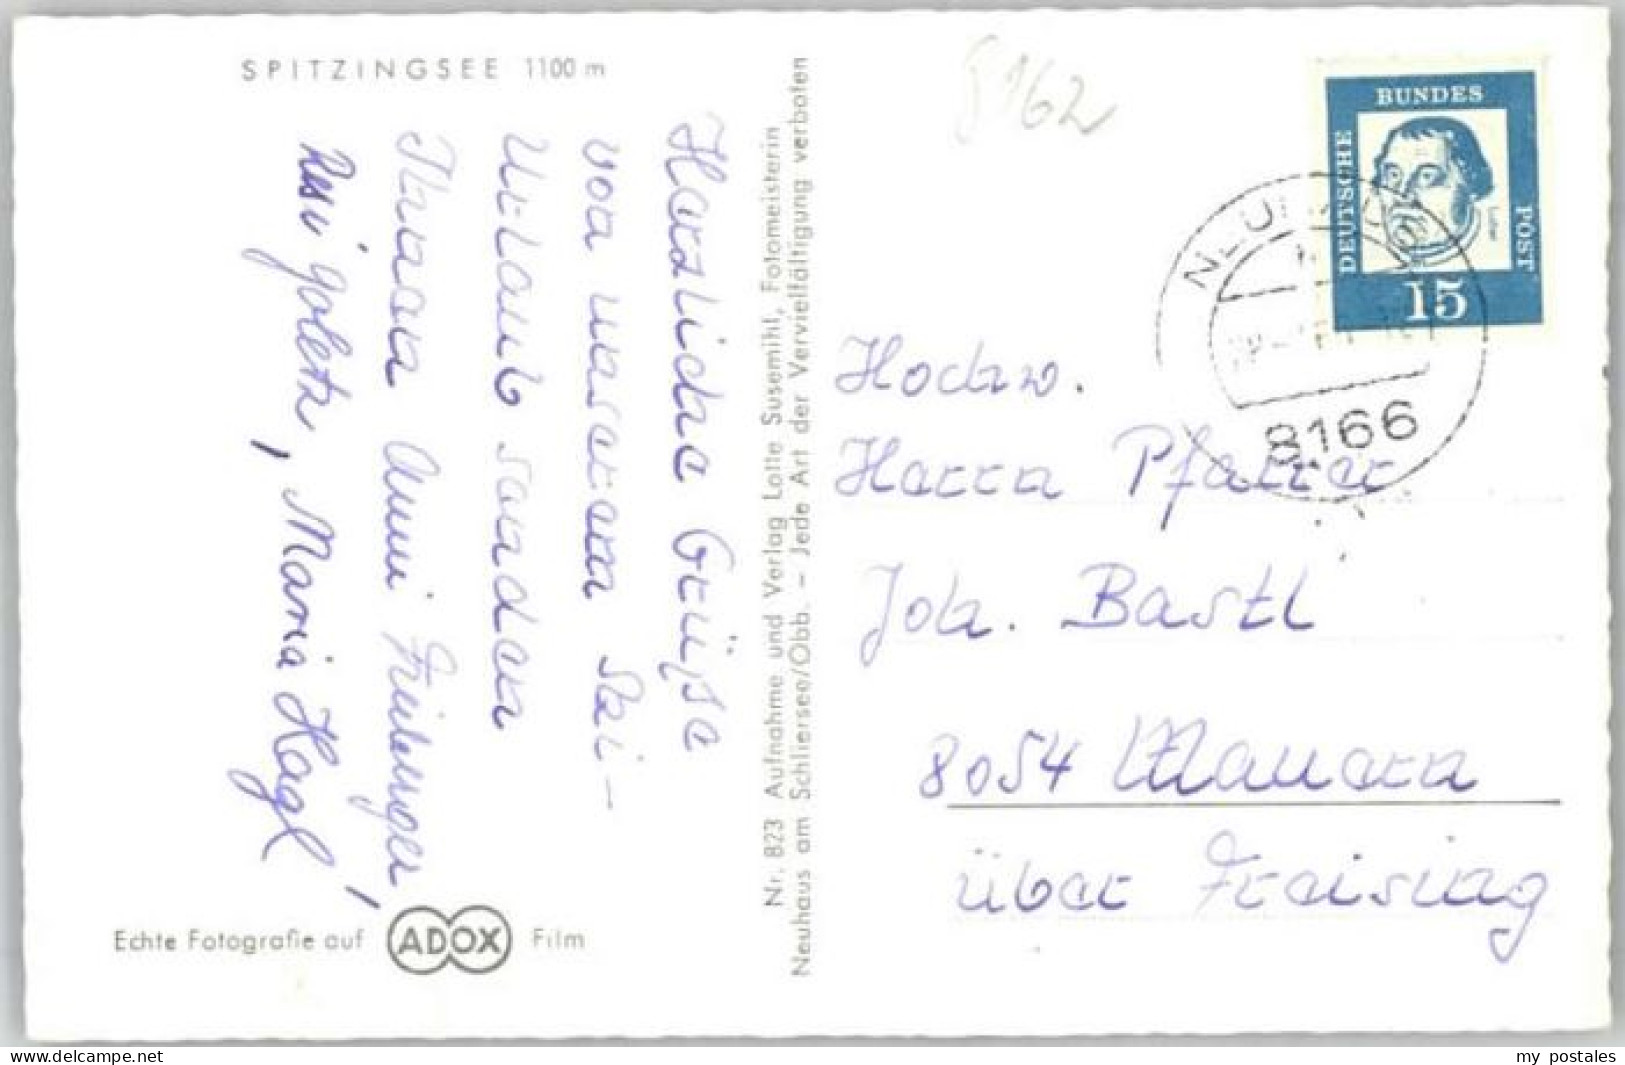 SPITZINGSEE 1100 m
Herzliche Grüße
von unserem Bei-
Urlaub senden
Ihnen Anni
Resi, Maria Hagl
Echte Fotografie auf ADOX Film
Nr. 823 Aufnahme und Verlag Lotte Susemihl, Fotomeisterin
Neuhaus am Schliersee/Obb. – Jede Art der Vervielfältigung verboten
5162
DEUTSCHE BUNDES POST
Luther
15
8166
Hochw.
Herrn Pfarrer
Joh. Bastl
8054 Mauern
über Freising
www.oldthing.de
my postales